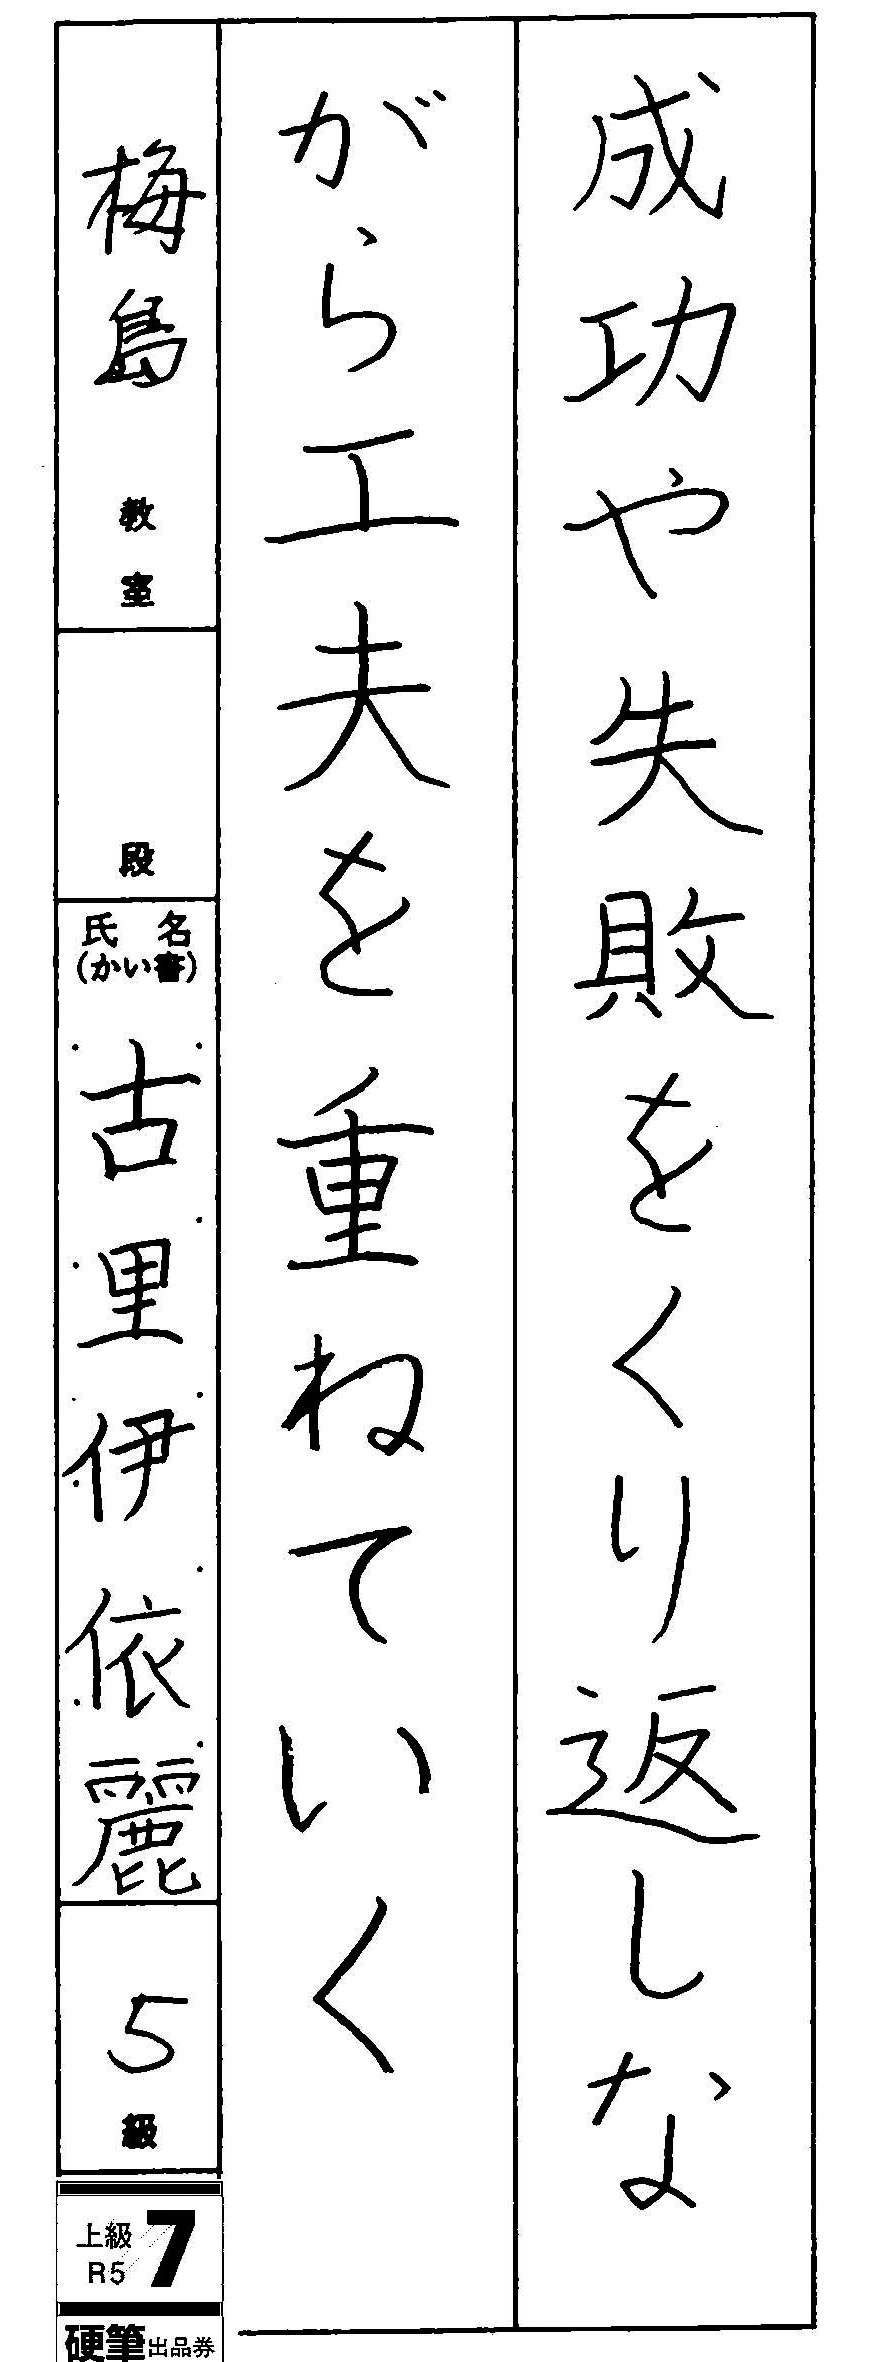 成功や失敗をくり返しな
がら工夫を重ねていく
梅島教室
段
氏名
(かい書)
古里伊依麗
5級
上級
R5
7
硬筆出品券